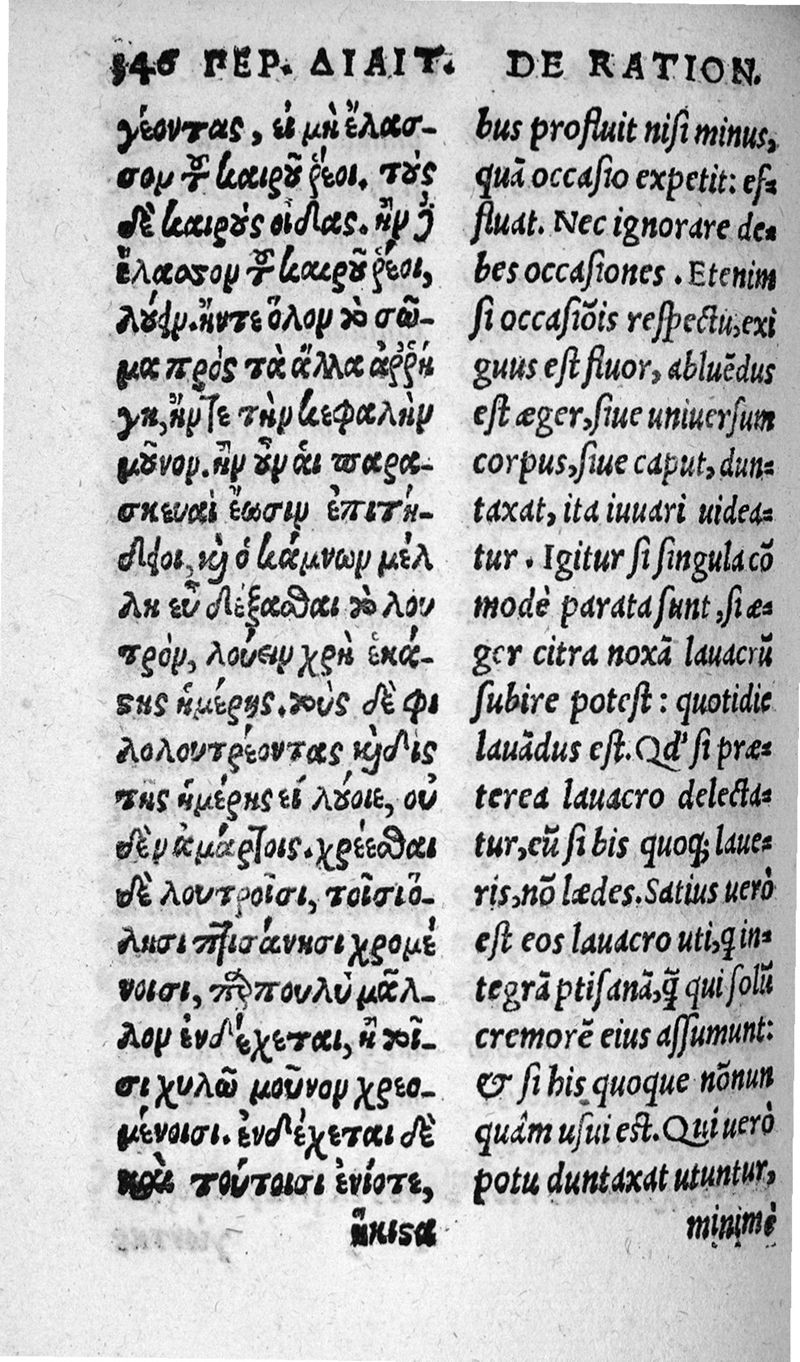 346 ΠΕΡ. ΔΙΑΙΤ. DE RATION.
ρέοντας, εἰ μὴ ἔλασ-
σον τοῦ καιροῦ ῥέοι. τοὺς
δὲ καιροὺς οἶδας. ἢν δὲ
ἔλασσον τοῦ καιροῦ ῥέοι,
λούειν. ἤντε ὅλον τὸ σῶ-
μα πρὸς τὰ ἄλλα ἀῤῥή
γη, ἤντε τὴν κεφαλὴν
μοῦνον. ἢν οὖν αἱ παρα-
σκευαὶ ἔωσιν ἐπιτή-
δειοι, καὶ ὁ κάμνων μέλ
λη εὖ δέξασθαι τὸ λου
τρὸν, λούειν χρὴ ἑκά-
στης ἡμέρης. τοὺς δὲ φι
λολουτρέοντας καὶ δὶς
τῆς ἡμέρης εἰ λούοις, οὐ
δὲν ἁμάρτοις. χρέεσθαι
δὲ λουτροῖσι, τοῖσι ὅ-
λησι πτισάνησι χρομέ
νοισι, παραπουλὺ μᾶλ-
λον ἐνδέχεται, ἢ τοῖ-
σι χυλῶ μοῦνον χρεο-
μένοισι. ἐνδέχεται δὲ
καὶ τούτοισι ἐνίοτε,
ἥκιστα
bus profluit nisi minus,
quā occasio expetit: ef-
fluat. Nec ignorare de-
bes occasiones. Etenim
si occasiōis respectu, exi
guus est fluor, abluēdus
est æger, siue uniuersum
corpus, siue caput, dun-
taxat, ita iuuari uidea-
tur. Igitur si singula cō
modè parata sunt, si æ-
ger citra noxā lauacrū
subire potest: quotidie
lauādus est. Qd' si præ-
terea lauacro delecta-
tur, cū si bis quoq; laue-
ris, nō lædes. Satius uerò
est eos lauacro uti, q in-
tegrā ptisanā, q̃ qui solū
cremorē eius assumunt:
& si his quoque nōnun
quâm usui est. Qui uerò
potu duntaxat utuntur,
minimè